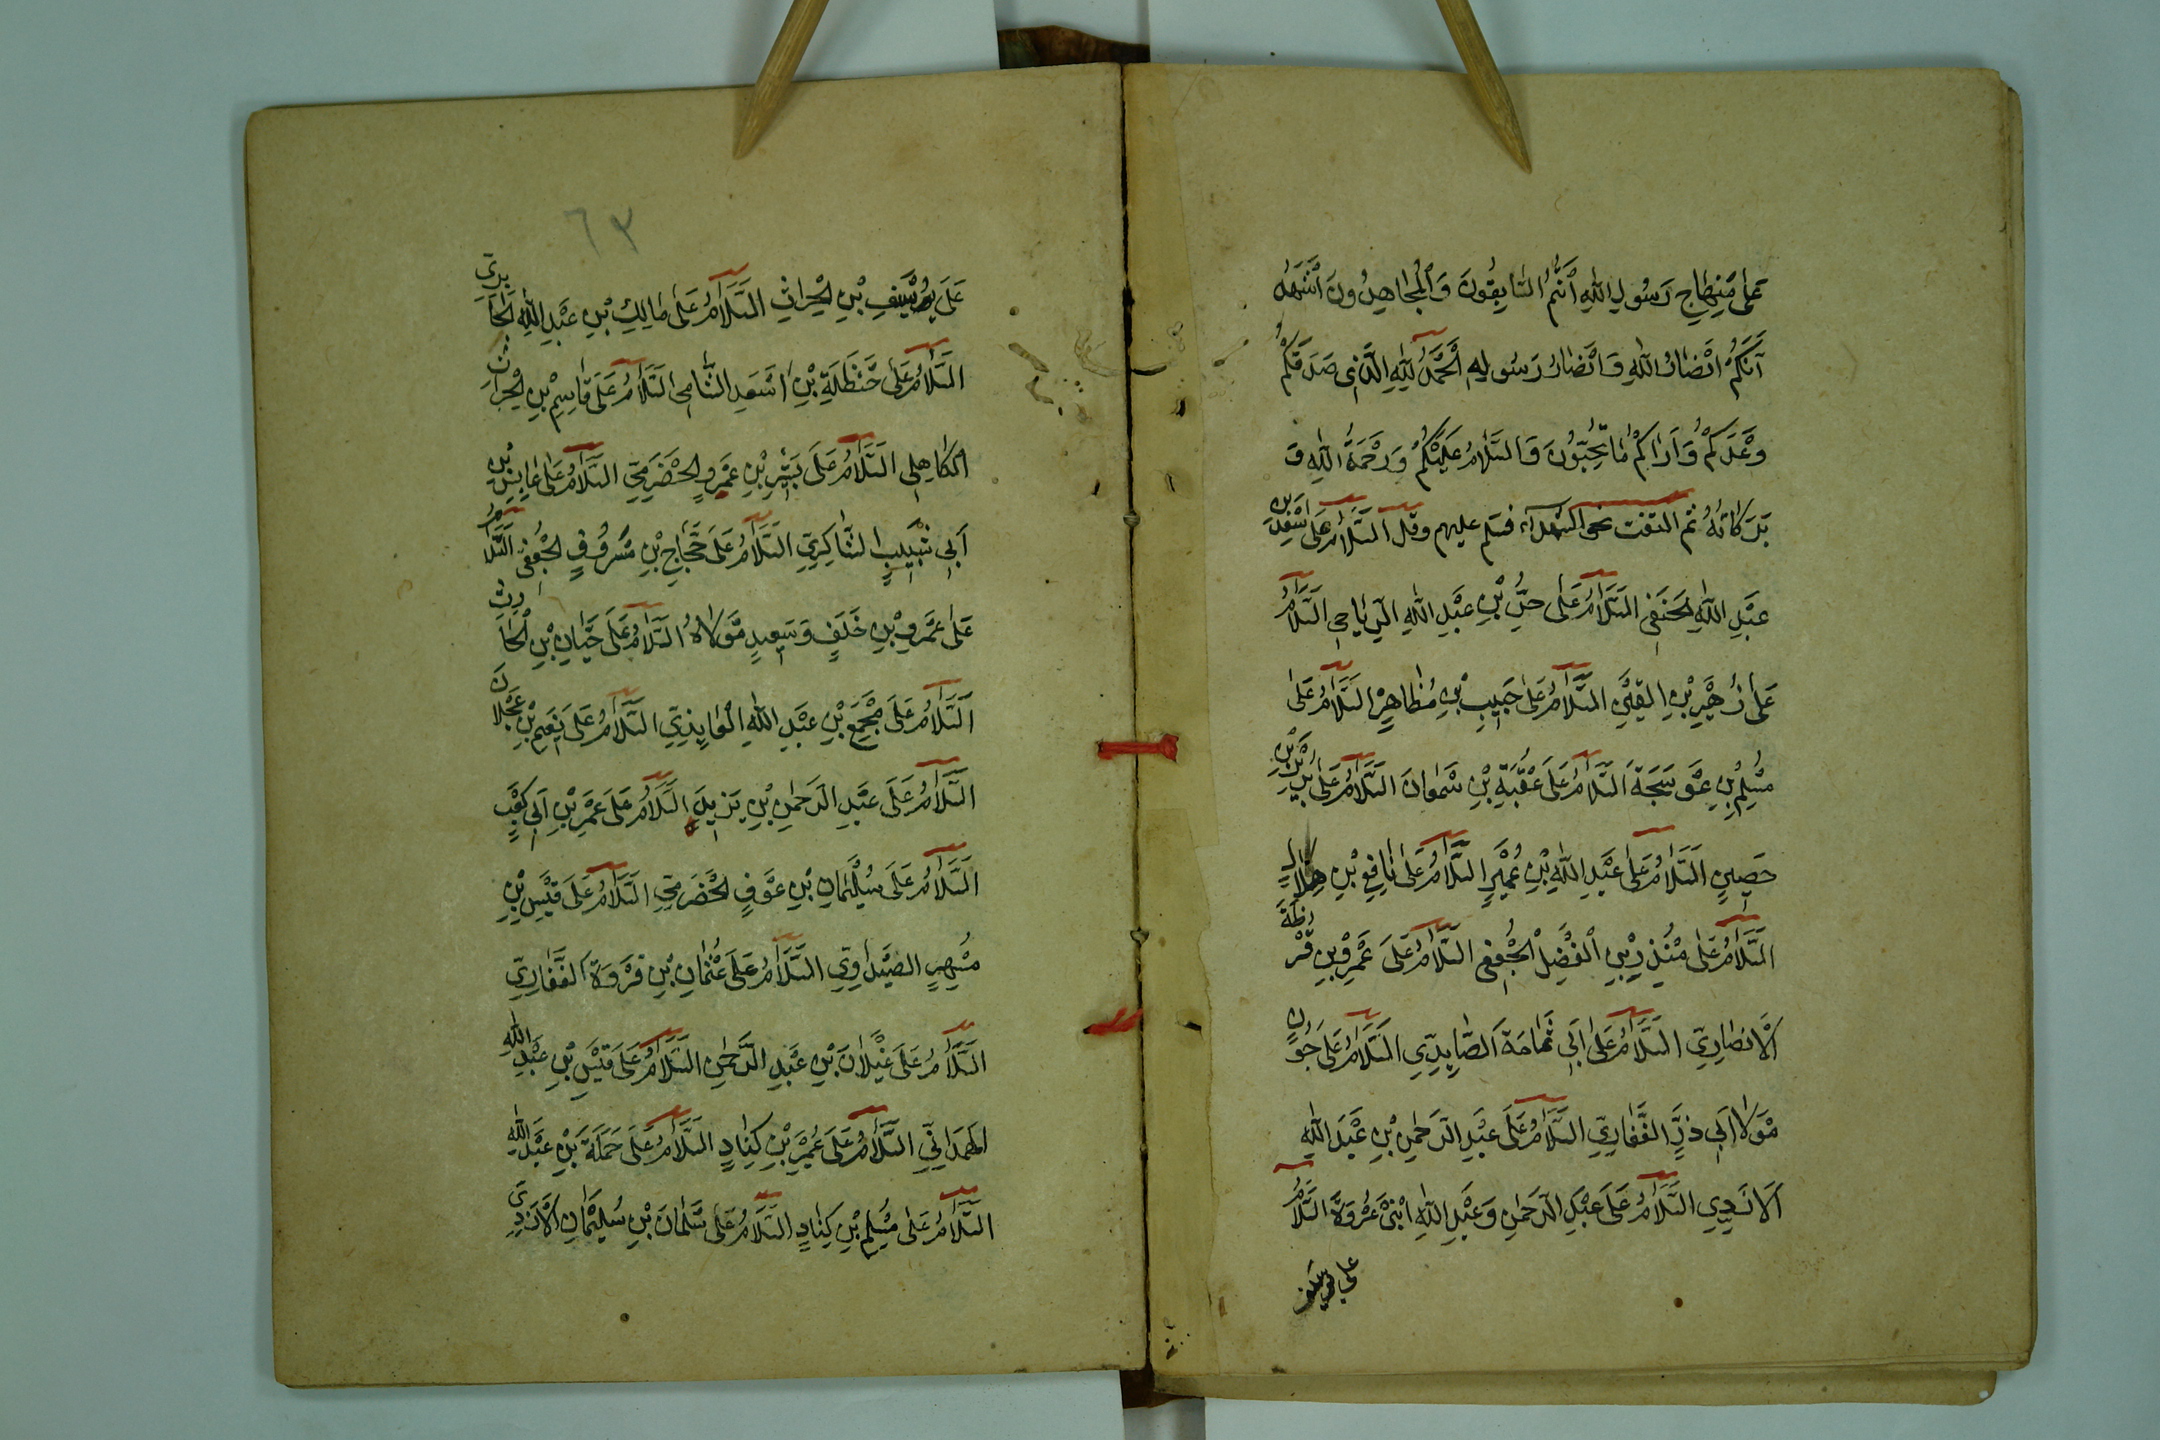 عَلىٰ مِنْهٰاجِ رَسُولِ اللّٰهِ اَنْتُمُ السّٰابِقُونَ وَ الْمُجٰاهِدُونَ اَشْهَدُ
اَنَّكُمْ اَنْصٰارُ اللّٰهِ وَ اَنْصٰارُ رَسُولِهِ اَلْحَمْدُ لِلّٰهِ الَّذِي صَدَقَكُمْ
وَعْدَكُمْ وَ اَرٰاكُمْ مٰا تُحِبُّونَ وَ السَّلٰامُ عَلَيْكُمْ وَ رَحْمَةُ اللّٰهِ وَ
بَرَكٰاتُهُ ثم التفت نحو الشهدآء فسلم عليهم وقل اَلسَّلٰامُ عَلىٰ سَعْدِ بْنِ
عَبْدِ اللّٰهِ الْحَنَفِي اَلسَّلٰامُ عَلىٰ حُرِّ بْنِ عَبْدِ اللّٰهِ الرِّيٰاحِي اَلسَّلٰامُ
عَلىٰ زُهَيْرِ بْنِ الْقَيْنِ اَلسَّلٰامُ عَلىٰ حَبِيبِ بْنِ مُظٰاهِرْ اَلسَّلٰامُ عَلىٰ
مُسْلِمِ بْنِ عَوْسَجَةَ اَلسَّلٰامُ عَلىٰ عُقْبَةِ بْنِ سَمْعٰانَ اَلسَّلٰامُ عَلىٰ بُرَيْرِ بْنِ
حَصِينٍ اَلسَّلٰامُ عَلىٰ عَبْدِ اللّٰهِ بْنِ عُمَيْرٍ اَلسَّلٰامُ عَلىٰ نٰافِعِ بْنِ هِلٰالٍ
اَلسَّلٰامُ عَلىٰ مُنْذِرِ بْنِ الْفَضْلِ الْجُعْفِي اَلسَّلٰامُ عَلىٰ عَمْرِو بْنِ قَرْظَةَ
الْاَنْصٰارِيِّ اَلسَّلٰامُ عَلىٰ اَبِي ثُمٰامَةَ الصّٰائِدِيِّ اَلسَّلٰامُ عَلىٰ جُونٍ
مَوْلٰا اَبِي ذَرٍّ الْغَفّٰارِيِّ اَلسَّلٰامُ عَلىٰ عَبْدِ الرَّحْمٰنِ بْنِ عَبْدِ اللّٰهِ
الْاَزْدِي اَلسَّلٰامُ عَلىٰ عَبْدِ الرَّحْمٰنِ وَ عَبْدِ اللّٰهِ ابْنَيْ عُرْوَةَ اَلسَّلٰامُ
على
٦٣
عَلىٰ سَيْفِ بْنِ الْحٰارِثِ اَلسَّلٰامُ عَلىٰ مٰالِكِ بْنِ عَبْدِ اللّٰهِ الْحٰائِرِيِّ
اَلسَّلٰامُ عَلىٰ حَنْظَلَةِ بْنِ اَسْعَدِ الشّٰامِي اَلسَّلٰامُ عَلىٰ قٰاسِمِ بْنِ الْحٰارِثِ
الْكٰاهِلِي اَلسَّلٰامُ عَلىٰ بَشِيرِ بْنِ عَمْرٍو الْحَضْرَمِيِّ اَلسَّلٰامُ عَلىٰ عٰابِسِ بْنِ
اَبِي شَبِيبٍ الشّٰاكِرِيِّ اَلسَّلٰامُ عَلىٰ حَجّٰاجِ بْنِ مَسْرُوقٍ الْجُعْفِيِّ اَلسَّلٰامُ
عَلىٰ عَمْرِو بْنِ خَلَفٍ وَ سَعِيدٍ مَوْلٰاهُ اَلسَّلٰامُ عَلىٰ حَيّٰانِ بْنِ الْحٰارِثِ
اَلسَّلٰامُ عَلىٰ مُجَمِّعِ بْنِ عَبْدِ اللّٰهِ الْعٰائِذِيِّ اَلسَّلٰامُ عَلىٰ نَعِيمِ بْنِ عَجْلٰانَ
اَلسَّلٰامُ عَلىٰ عَبْدِ الرَّحْمٰنِ بْنِ يَزِيدَ اَلسَّلٰامُ عَلىٰ عُمَرِ بْنِ اَبِي كَعْبٍ
اَلسَّلٰامُ عَلىٰ سُلَيْمٰانِ بْنِ عَوْفٍ الْحَضْرَمِيِّ اَلسَّلٰامُ عَلىٰ قَيْسِ بْنِ
مُسْهِرٍ الصَّيْدٰاوِيِّ اَلسَّلٰامُ عَلىٰ عُثْمٰانِ بْنِ فَرْوَةَ الْغَفّٰارِيِّ
اَلسَّلٰامُ عَلىٰ غَيْلٰانَ بْنِ عَبْدِ الرَّحْمٰنِ اَلسَّلٰامُ عَلىٰ قَيْسِ بْنِ عَبْدِ اللّٰهِ
الْهَمْدٰانِيِّ اَلسَّلٰامُ عَلىٰ عُمَيْرِ بْنِ كَنّٰادٍ اَلسَّلٰامُ عَلىٰ حَمَلَةَ بْنِ عَبْدِ اللّٰهِ
اَلسَّلٰامُ عَلىٰ مُسْلِمِ بْنِ كَنّٰادٍ اَلسَّلٰامُ عَلىٰ سَلْمٰانَ بْنِ سُلَيْمٰانِ الْاَزْدِيِّ